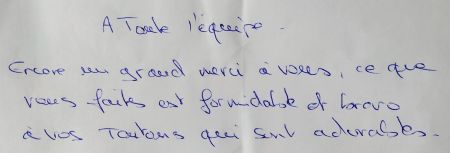 A Toute l'équipe.
Encore un grand merci à vous, ce que
vous faites est formidable et bravo
à vos Toutous qui sont adorables.